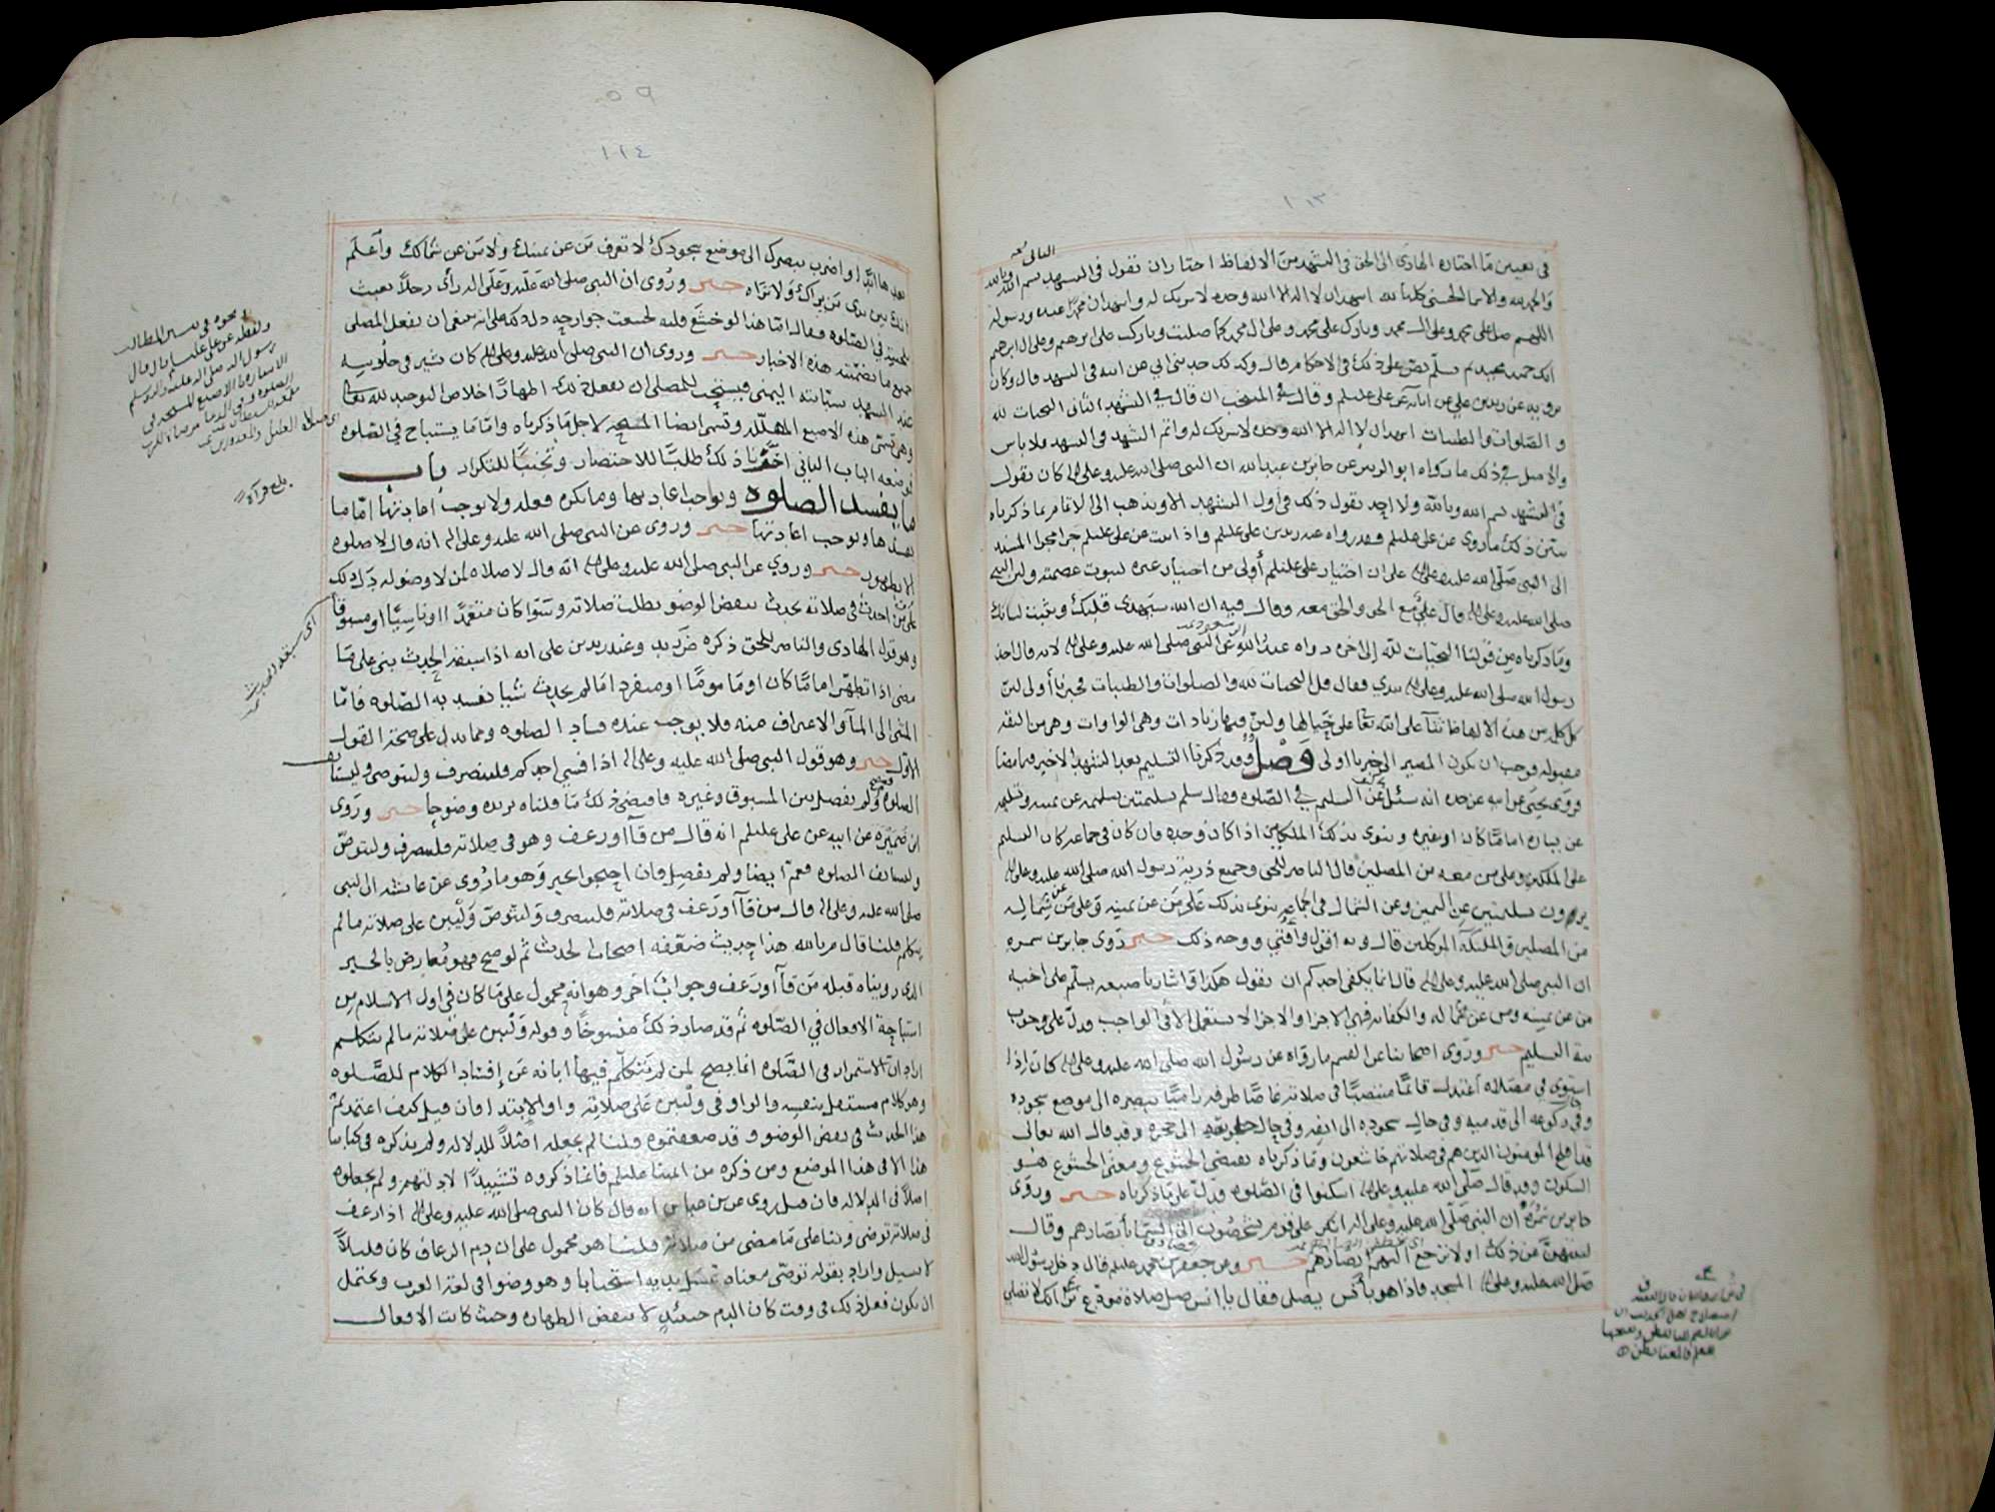 ١٢٣
في تعيين ما اختاره الهادي الى الحق في التشهد من الالفاظ اختار ان تقول في التشهد بسم الله وبالله
والحمد لله والاسما الحسنى كلها لله اشهد ان لا اله الا الله وحده لا شريك له واشهد ان محمدا عبده ورسوله
اللهم صل على محمد وعلى ال محمد وبارك على محمد وعلى ال محمد كما صليت وباركت على ابرهيم وعلى ال ابرهيم
انك حميد مجيد ثم يسلم نص على ذلك في الاحكام قال وكذلك حدثني ابي عن ابيه في التشهد قال وكان
يرويه عن زيد بن علي عن ابائه عن علي عليلم وقال في المنتخب ان قال في التشهد الثاني التحيات لله
والصلوات والطيبات اشهد ان لا اله الا الله وحده لا شريك له واتم التشهد في التشهد فلا باس
والاصل في ذلك ما رواه ابو الزبير عن جابر بن عبدالله ان النبي صلى الله عليه وعلى اله كان يقول
في التشهد بسم الله وبالله ولا احد يقول ذلك في اول التشهد الا ويذهب الى الاتمام بما ذكرناه
يبين ذلك ما روي عن علي عليلم وقد رواه عنه زيد بن علي عليلم واذا ثبت عن علي عليلم جرا مجرا المسند
الى النبي صلى الله عليه وعلى اله على ان اختيار علي عليلم أولى من اختيار غيره لثبوت عصمته ولان النبي
صلى الله عليه وعلى اله قال علي مع الحق والحق معه وقال فيه ان الله سيهدي قلبك ويثبت لسانك
وما ذكرناه من قولنا التحيات لله إلى اخره رواه عبد الله بن مسعود عن النبي صلى الله عليه وعلى اله لانه قال اخذ
رسول الله صلى الله عليه وعلى اله بيدي فقال قل التحيات لله والصلوات والطيبات فخبرنا أولى لان
كل كلمة من هذه الالفاظ ثنآ على الله تعا على حيالها ولان فيها زيادات وهي الواوات وهي من الثقه
مقبوله فوجب ان يكون المصير الى خبرنا اولى فصل وقد ذكرنا التسليم بعد التشهد الاخير فيما مضا
وروى يحيى عن ابيه عن جده انه سئل عن التسليم في الصلوه فقال سلم تسليمتين تسليمه عن يمينه وتسليمه
عن يساره اماما كان او غيره وينوى بذلك الملكين اذا كان وحده فان كان في جماعه كان التسليم
على الملكين وعلى من معه من المصلين قال الناصر للحق وجميع ذرية رسول الله صلى الله عليه وعلى اله
يرون تسليمتين عن اليمين وعن الشمال في الجماعه ينوى بذلك على من عن يمينه وعلى من عن شماله
من المصلين والملئكة الموكلين قال وبه اقول وأفتي ووجه ذلك خبر روى جابر بن سمره
ان النبي صلى الله عليه وعلى اله قال انما يكفي احدكم ان يقول هكذا واشار باصبعه يسلم على اخيه
من عن يمينه ومن عن شماله والكفايه فهي الاجزا والاجزا لا يستعمل الا في الواجب فدل على وجوب
نية التسليم خبر وروى اصحابنا عن القسم ما رواه عن رسول الله صلى الله عليه وعلى اله كان اذا
استوى في مصلاه اعتدل قائما منتصبا في صلاته غاضا طرفه راميا ببصره الى موضع سجوده
وفي ركوعه الى قدميه وفي حال سجوده الى انفه وفي حال جلوسه الى حجره وقد قال الله تعالى
قد افلح المومنون الذين هم في صلاتهم خاشعون وما ذكرناه يقتضي الخشوع ومعنى الخشوع هو
السكون وقد قال صلى الله عليه وعلى اله اسكنوا في الصلوه فدل على ما ذكرناه خبر وروى
جابر بن سمره ان النبي صلى الله عليه وعلى اله انكر على قوم يشخصون الى السما بأبصارهم وقال
لينتهن عن ذلك او لا ترجع اليهم ابصارهم خبر وعن جعفر بن محمد عليلم قال دخل رسول الله
صلى الله عليه وعلى اله المسجد فاذا هو بأنس يصلى فقال يا انس صل صلاة مودع ترى انك لا تصلي
٥٩
١٢٤
بعدها ابدا واضرب ببصرك الى موضع سجودك لا تعرف من عن يمينك ولا من عن شمالك واعلم
انك بين يدي من يراك ولا تراه خبر وروى ان النبي صلى الله عليه وعلى اله رأى رجلا يعبث
بلحيته في الصلوه فقال اما هذا لو خشع قلبه لخشعت جوارحه دل ذلك على انه ينبغي ان يفعل المصلى
جميع ما تضمنته هذه الاخبار خبر وروى ان النبي صلى الله عليه وعلى اله كان يشير في جلوسه
عند التشهد بسبابته اليمنى فيستحب للمصلي ان يفعل ذلك اظهارا اخلاص التوحيد لله تعالى
وهي تسمى هذه الاصبع المهلله وتسمى ايضا المسبحه لاجل ما ذكرناه واما ما يستباح في الصلوه
فموضعه الباب الثاني اخرنا ذلك طلبا للاختصار وتجنبا للتكرار باب
ما يفسد الصلوه ويوجب اعادتها وما يكره فعله ولا يوجب اعادتها اما ما
يفسدها ويوجب اعادتها خبر وروى عن النبي صلى الله عليه وعلى اله انه قال لا صلوه
الا بطهور خبر وروي عن النبي صلى الله عليه وعلى اله انه قال لا صلاة لمن لا وضو له دل ذلك
على من احدث في صلاته بحدث ينقض الوضو بطلت صلاته وسوا كان متعمدا او ناسيا او مسبوقا
وهو قول الهادي والناصر للحق ذكره ض زيد وعند زيد بن علي انه اذا سبقه الحدث بنى على ما
مضى اذا تطهر اماما كان او مأموما او منفردا ما لم يحدث شيا تفسد به الصلوه فاما
المشى الى المآ والاغتراف منه فلا يوجب عنده فساد الصلوه ومما يدل على صحة القول
الاول خبر وهو قول النبي صلى الله عليه وعلى اله اذا قسى احدكم فلينصرف وليتوضى وليستأنف
الصلوه ولم يفصل بين المسبوق وغيره فاقتضى ذلك ما قلناه نزيده وضوحا خبر وروى
ابن ضميره عن ابيه عن علي عليلم انه قال من قآ او رعف وهو في صلاته فلينصرف وليتوض
وليستانف الصلوه فعم ايضا ولم يفصل فان احتجوا بخبر وهو ما روى عن عائشه ان النبي
صلى الله عليه وعلى اله قال من قآ او رعف في صلاته فلينصرف وليتوض وليبن على صلاته ما لم
يتكلم قلنا قال م بالله هذا حديث ضعفه اصحاب الحديث ثم لو صح فهو معارض بالخبر
الذى رويناه قبله من قآ او رعف وجواب اخر وهو انه محمول على ما كان في اول الاسلام من
استباحة الافعال في الصلوه ثم قد صار ذلك منسوخا وقوله وليبن على صلاته ما لم يتكلم
اراد ان الاستمرار في الصلوه انما يصح لمن لم يتكلم فيها ابانه عن إفساد الكلام للصلوه
وهو كلام مستقل بنفسه والواو في وليبن على صلاته واو الابتدا فان قيل كيف اعتمدتم
هذا الحديث في نقض الوضو وقد ضعفتموه قلنا لم نجعله اصلا للدلاله ولم نذكره في كتابنا
هذا الا في هذا الموضع ومن ذكره من ائمتنا عليلم فانما ذكروه تشييدا لادلتهم ولم يجعلوه
اصلا في الدلاله فان قيل روى عن بن عباس انه قال كان النبي صلى الله عليه وعلى اله اذا رعف
في صلاته توضى وبنا على ما مضى من صلاته قلنا هو محمول على ان دم الرعاف كان قليلا
لا يسيل واراد بقوله توضى معناه غسل يديه استحبابا وهو وضوا في لغة العرب ويحتمل
ان يكون فعل ذلك في وقت كان الدم حينئذٍ لا ينقض الطهاره وحيث كانت الافعال
اى سبقه الحدث
بلغ قرآة